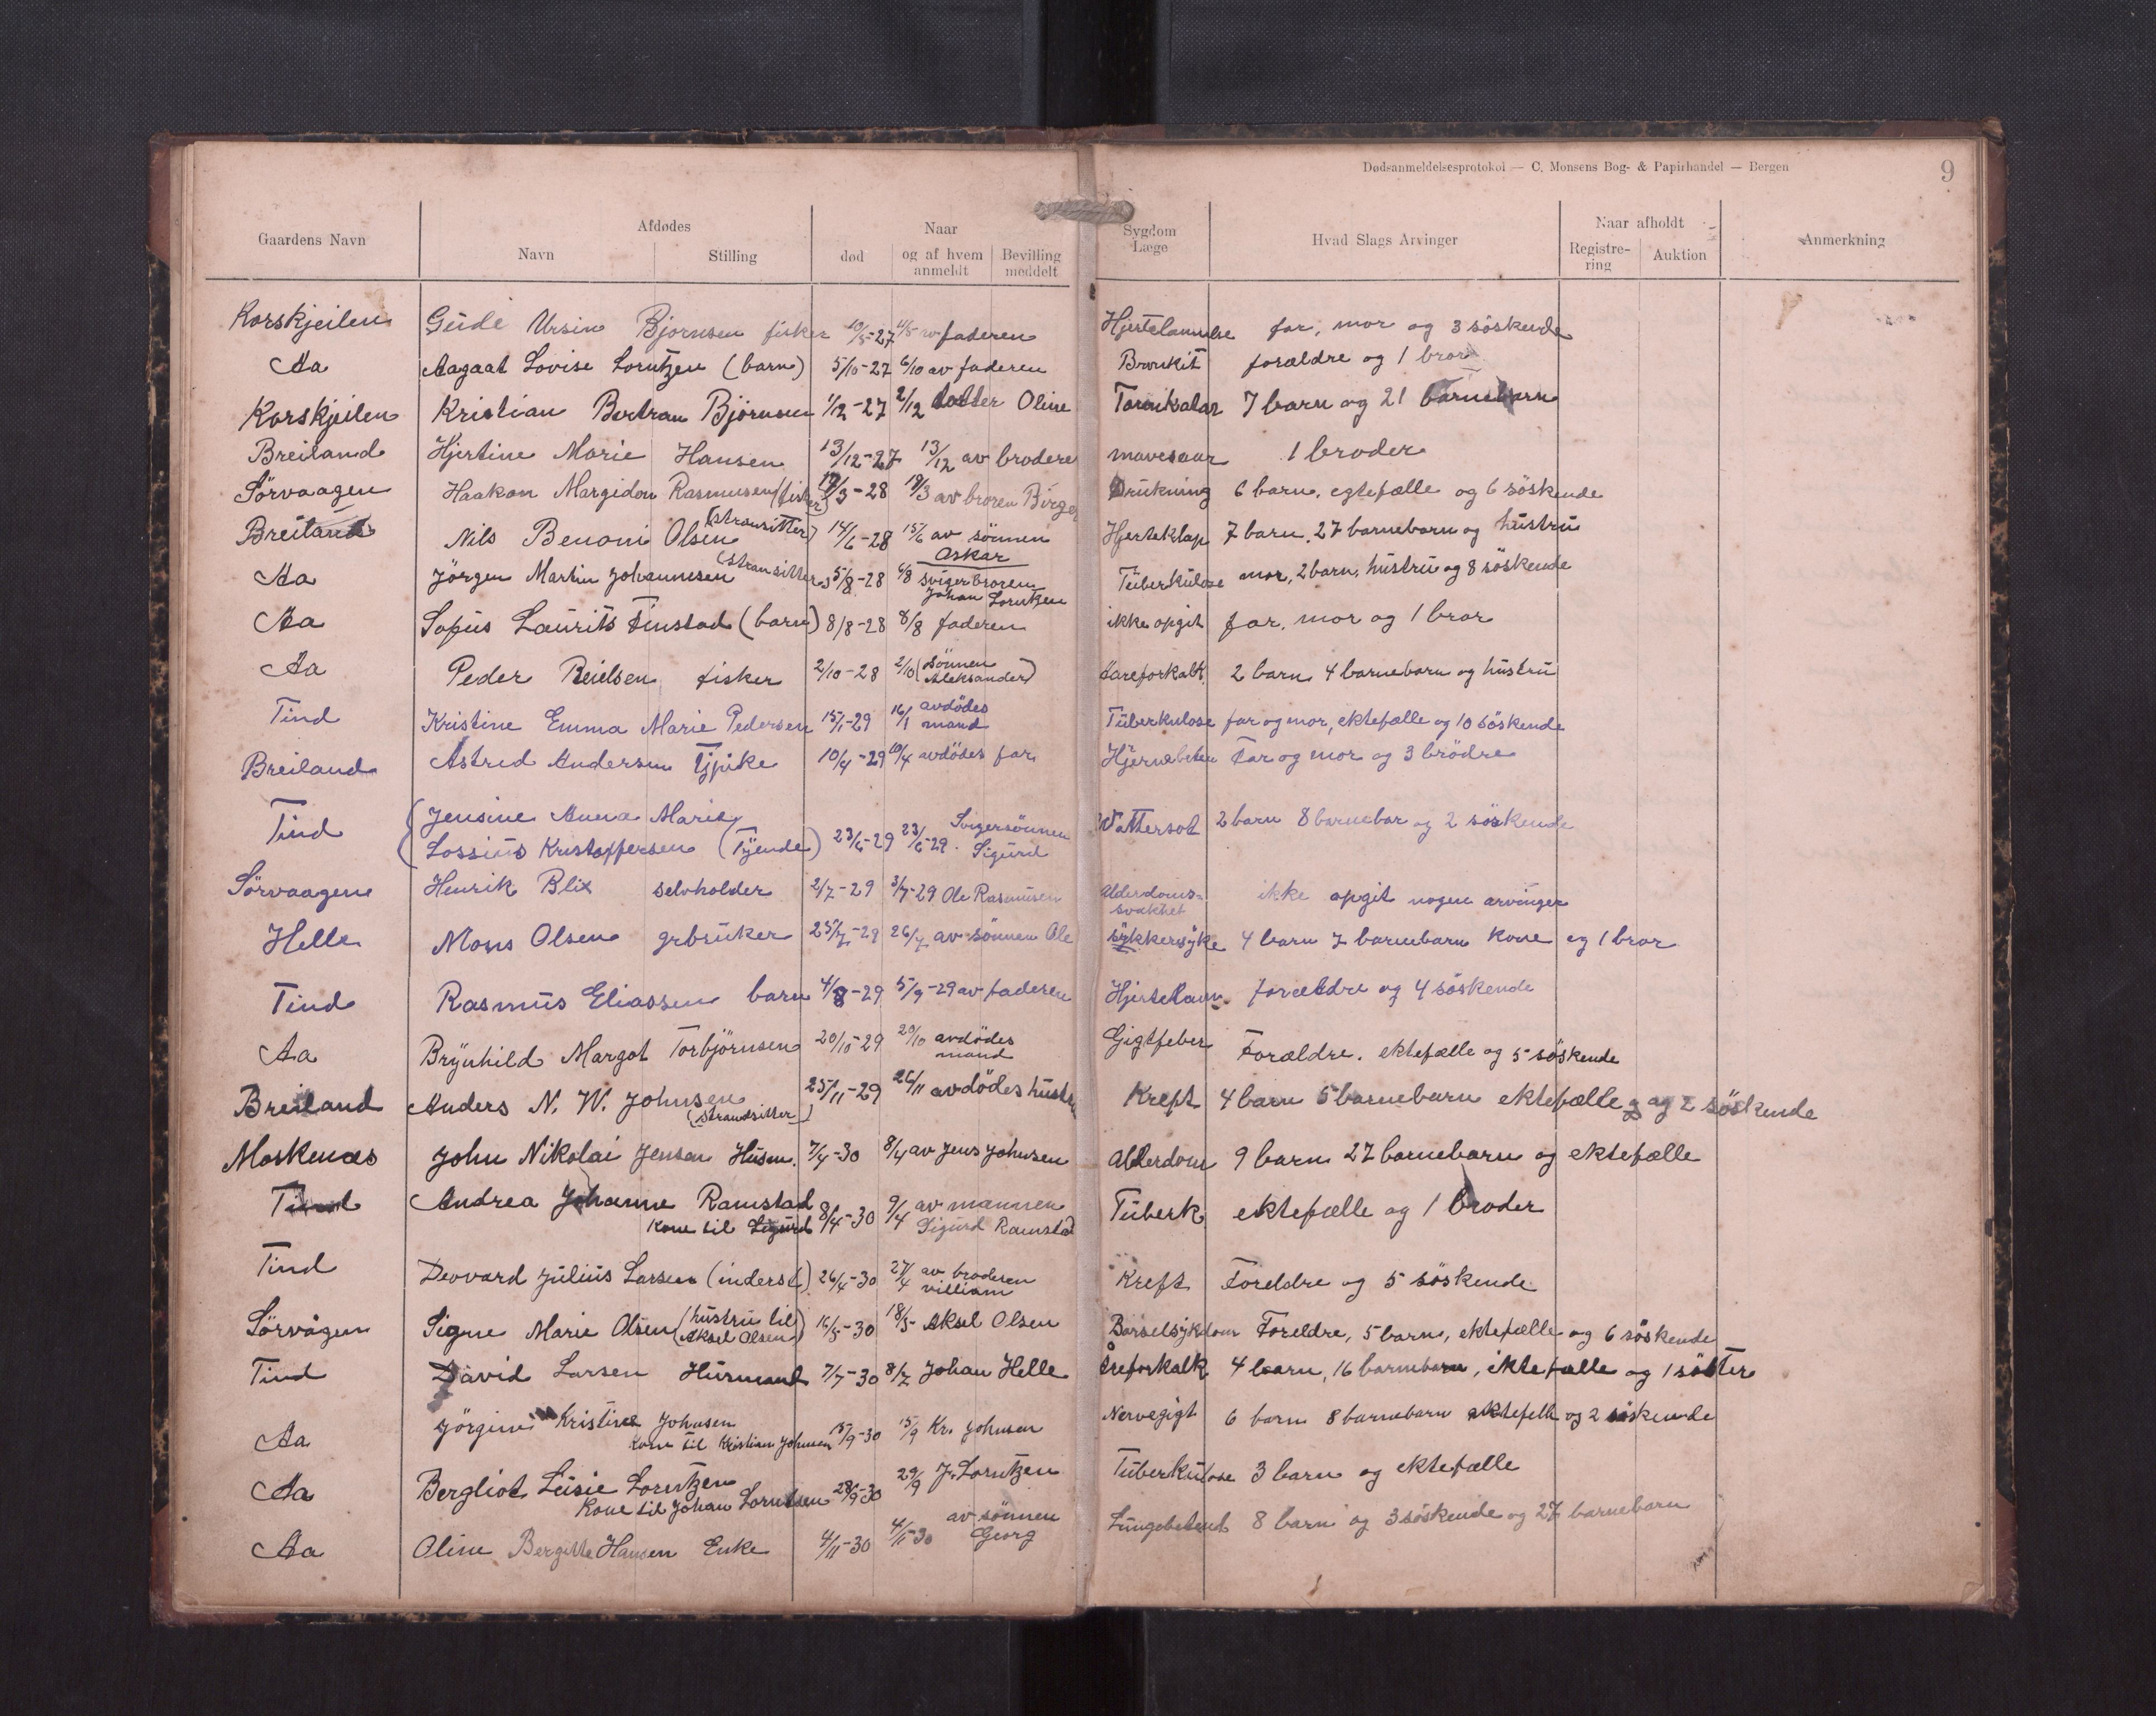 Dødsanmeldelsesprotokol — C. Monsens Bog- & Papirhandel — Bergen 9
Gaardens Navn Afdødes Navn Stilling Naar død og af hvem anmeldt Bevilling meddelt Sygdom Læge Hvad Slags Arvinger Naar afholdt Registre-ring Auktion Anmerkning
Korskjeilen Gude Ursin Bjornsen fisker 10/5-27 11/5 av faderen Hjertelammelse far, mor og 3 söskende
Aa Aagaat Lovise Lorntzen (barn) 5/10-27 6/10 av faderen Bronkit forældre og 1 bror
Korskjeilen Kristian Bertran Björnsen 1/12-27 2/12 datter Oline 7 barn og 21 barnebarn
Breiland Hjertine Marie Hansen 13/12-27 13/12 av brodere mavesaar 1 broder
Sörvaagen Haakon Margidon Rasmusen (fisker) 17/3-28 19/3 av broren Birger Drukning 6 barn, egtefælle og 6 söskende
Breiland Nils Benoni Olsen (stransitter) 14/6-28 15/6 av sönnen Oskar Hjerteklap 7 barn, 27 barnebarn og hustru
Aa Jörgen Martin Johannesen (stransitter) 5/8-28 6/8 svigerbroren Johan Lorntzen Tuberkulose mor, 2 barn, hustru og 8 söskende
Aa Sofus Laurits Finstad (barn) 8/8-28 8/8 faderen ikke opgit far, mor og 1 bror
Aa Peder Reielsen fisker 2/10-28 2/10 (sönnen Aleksander) Aareforkalk. 2 barn 4 barnebarn og hustru
Tind Kristine Emma Marie Pedersen 15/1-29 16/1 avdödes mand Tuberkulose far og mor, ektefælle og 10 söskende
Breiland Astrid Andersen Tjpike 10/4-29 10/4 avdödes far Far og mor og 3 brödre
Tind (Jensine Anna Marie
Lossius Kristoffersen (Tyende) 23/6-29 23/6-29. Svigersönnen Sigurd Vattersot 2 barn 8 barnebar og 2 söskende
Sörvaagen Henrik Blix selvholder 2/7-29 3/7-29 Ole Rasmusen Alderdoms-svakhet ikke opgit nogen arvinger
Helle Mons Olsen grbruker 25/7-29 26/7 av sönnen Ole sykkersyke 4 barn 7 barnebarn kone og 1 bror
Tind Rasmus Eliassen barn 4/8-29 5/9-29 av faderen Hjertelam. forældre og 4 söskende
Aa Brynhild Margot Torbjörnsen 20/10-29 20/10 avdödes mand Gigtfeber Forældre, ektefælle og 5 söskende
Breiland Anders N. W. Johnsen (strandsitter) 25/11-29 26/11 avdödes hustru Kreft 4 barn 5 barnebarn ektefælle og 2 söskende
Moskenes John Nikolai Jensen Husm. 7/4-30 8/4 av Jens Johnsen Alderdom 9 barn 27 barnebarn og ektefælle
Tind Andrea Johanne Ramstad kone til Sigurd 8/4-30 9/4 av mannen Sigurd Ramstad Tuberk ektefælle og 1 broder
Tind Devvard Julius Larsen (inderst) 26/4-30 27/4 av broderen villiam Kreft Foreldre og 5 söskende
Sörvågen Signe Marie Olsen (hustru til Aksel Olsen) 16/5-30 18/5 Aksel Olsen Barselsykdom Foreldre, 5 barn, ektefælle og 6 söskende
Tind David Larsen Husmand 7/7-30 8/7 Johan Helle Åreforkalk 4 barn, 16 barnebarn, ektefælle og 1 söster
Aa Jörgine Kristine Johnsen kone til Kristian Johnsen 15/9-30 15/9 Kr. Johnsen Nervegigt 6 barn 8 barnebarn ektefelle og 2 söskende
Aa Bergliot Luise Lorntzen Kone til Johan Lorntsen 28/9-30 29/9 J. Lorntzen Tuberkulose 3 barn og ektefælle
Aa Oline Bergitte Hansen Enke 4/11-30 4/11-30 av sönnen Georg Lungebetend 8 barn og 3 söskende og 27 barnebarn